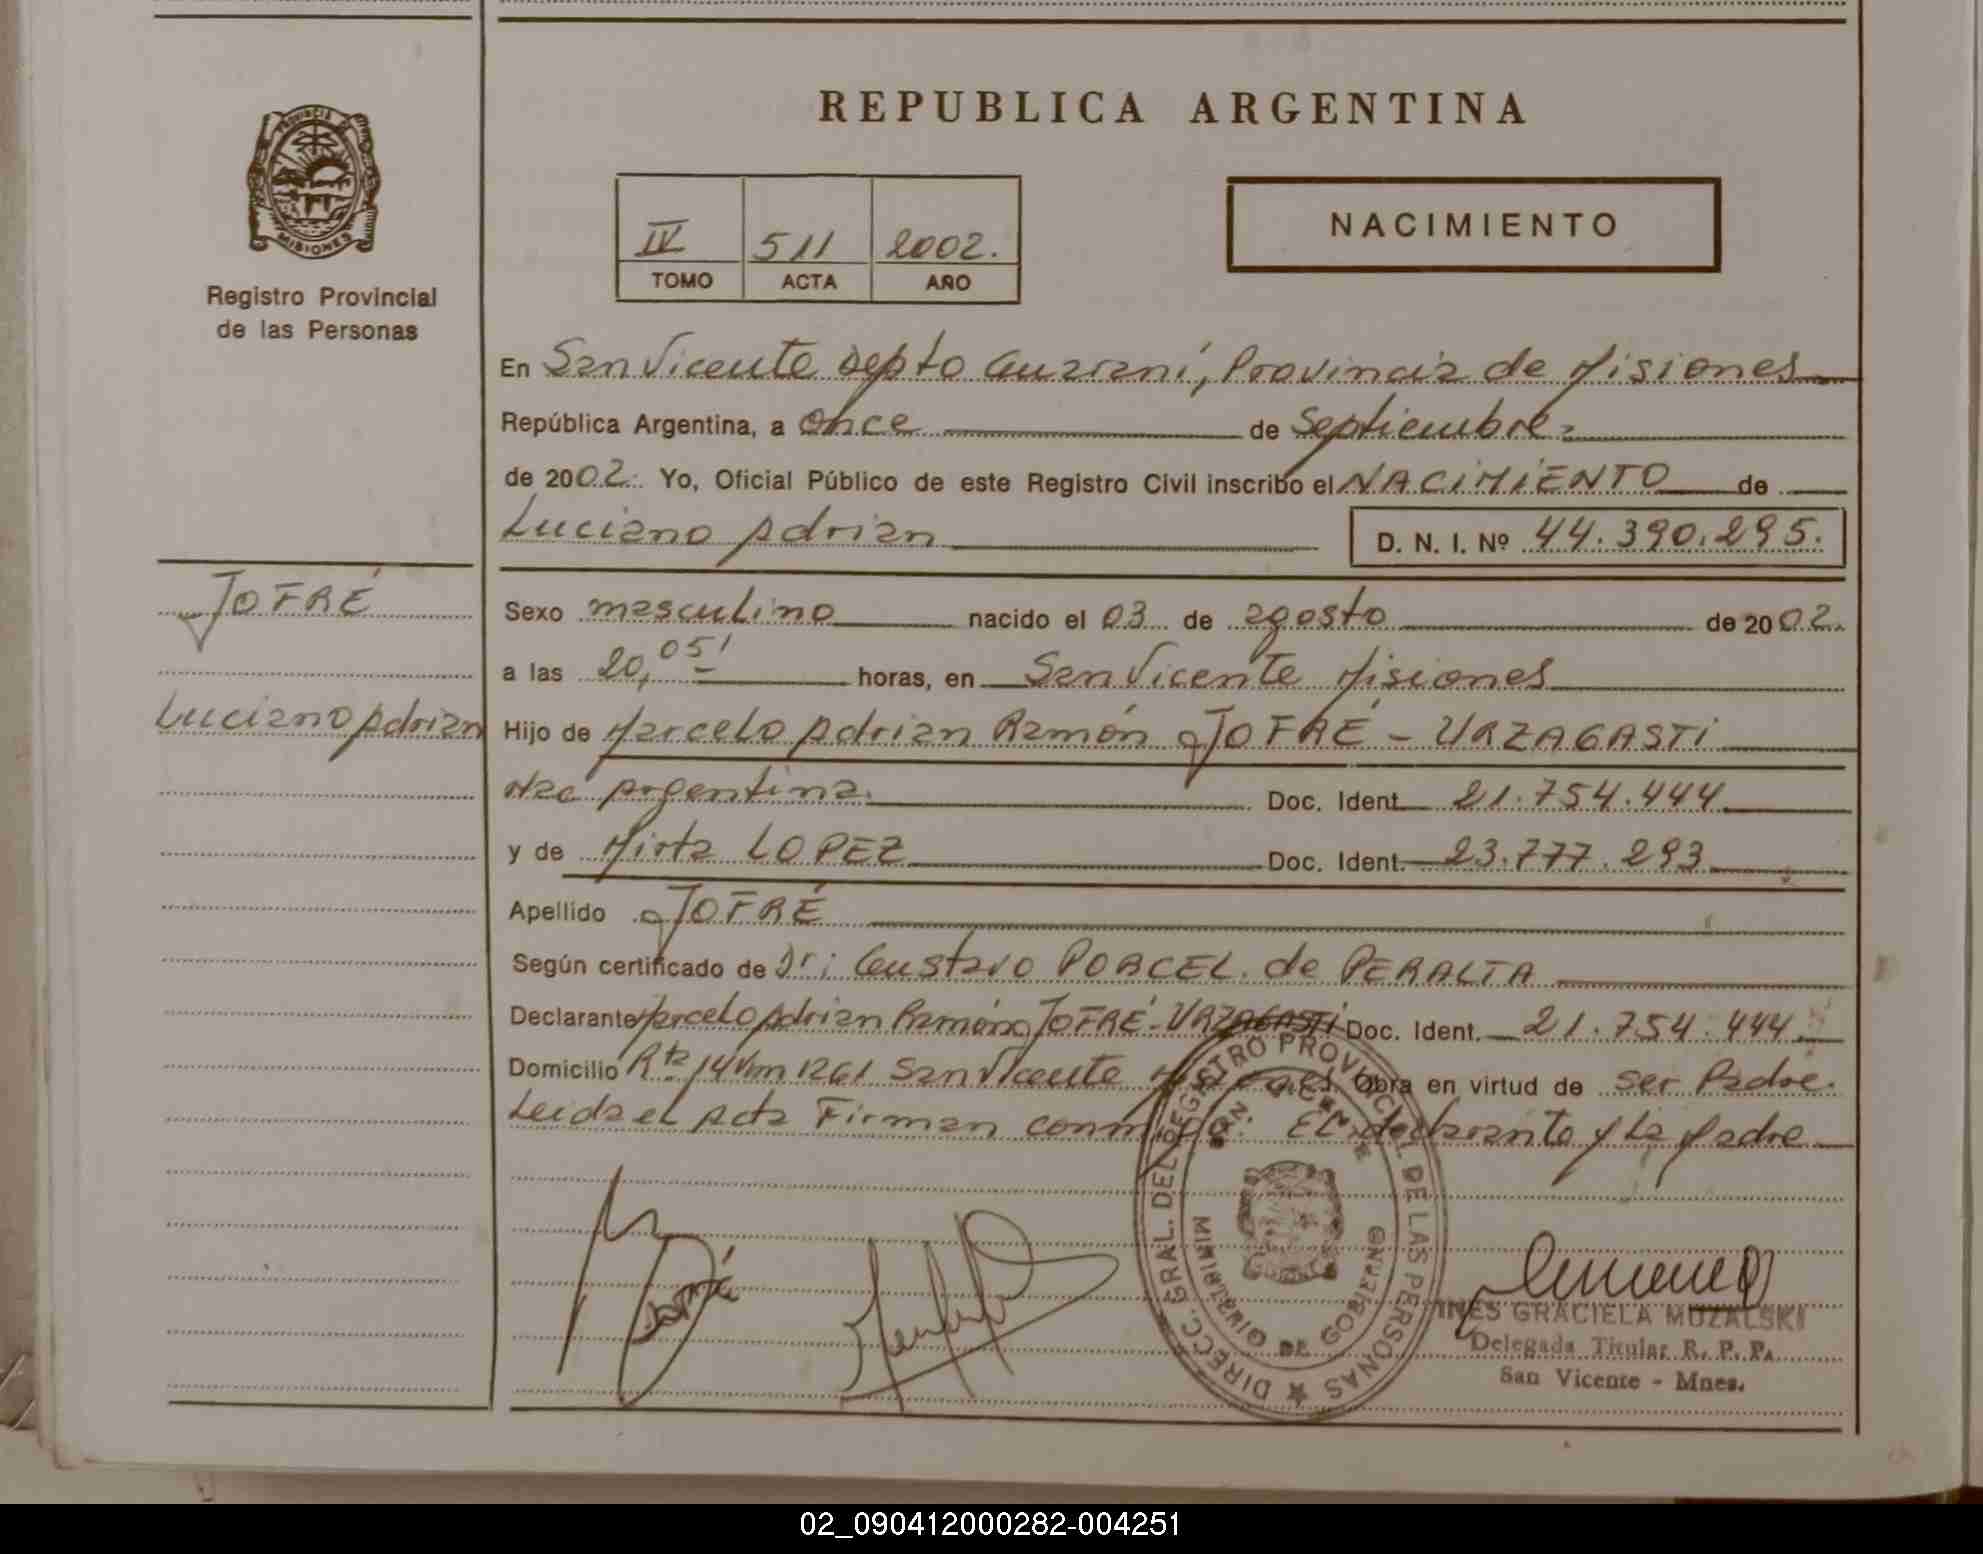 REPUBLICA ARGENTINA
PROVINCIA DE
MISIONES
Registro Provincial
de las Personas
IV 511 2002.
TOMO ACTA AÑO
NACIMIENTO
En San Vicente Depto Guaraní, Provincia de Misiones
República Argentina, a once de Septiembre
de 2002. Yo, Oficial Público de este Registro Civil inscribo el NACIMIENTO de
Luciano Adrian D. N. I. Nº 44.390.295.
JOFRÉ
Luciano Adrian
Sexo masculino nacido el 03 de agosto de 2002.
a las 20,05' horas, en San Vicente Misiones
Hijo de Marcelo Adrian Ramón JOFRÉ - URZAGASTI
Nac Argentina. Doc. Ident. 21.754.444
y de Mirta LOPEZ Doc. Ident. 23.777.293
Apellido JOFRÉ
Según certificado de Dr: Gustavo PORCEL de PERALTA
Declarante Marcelo Adrian Ramón JOFRÉ-URZAGASTI Doc. Ident. 21.754.444
Domicilio Rta 14 Km 1261 San Vicente Misiones Obra en virtud de ser Padre.
Leida el Acta Firman conmigo: El declarante y la Madre
DIRECC. GRAL. DEL REGISTRO PROVINCIAL DE LAS PERSONAS
SAN VICENTE
MINISTERIO DE GOBIERNO
INES GRACIELA MUZALSKI
Delegada Titular R. P. P.
San Vicente - Mnes.
02_090412000282-004251